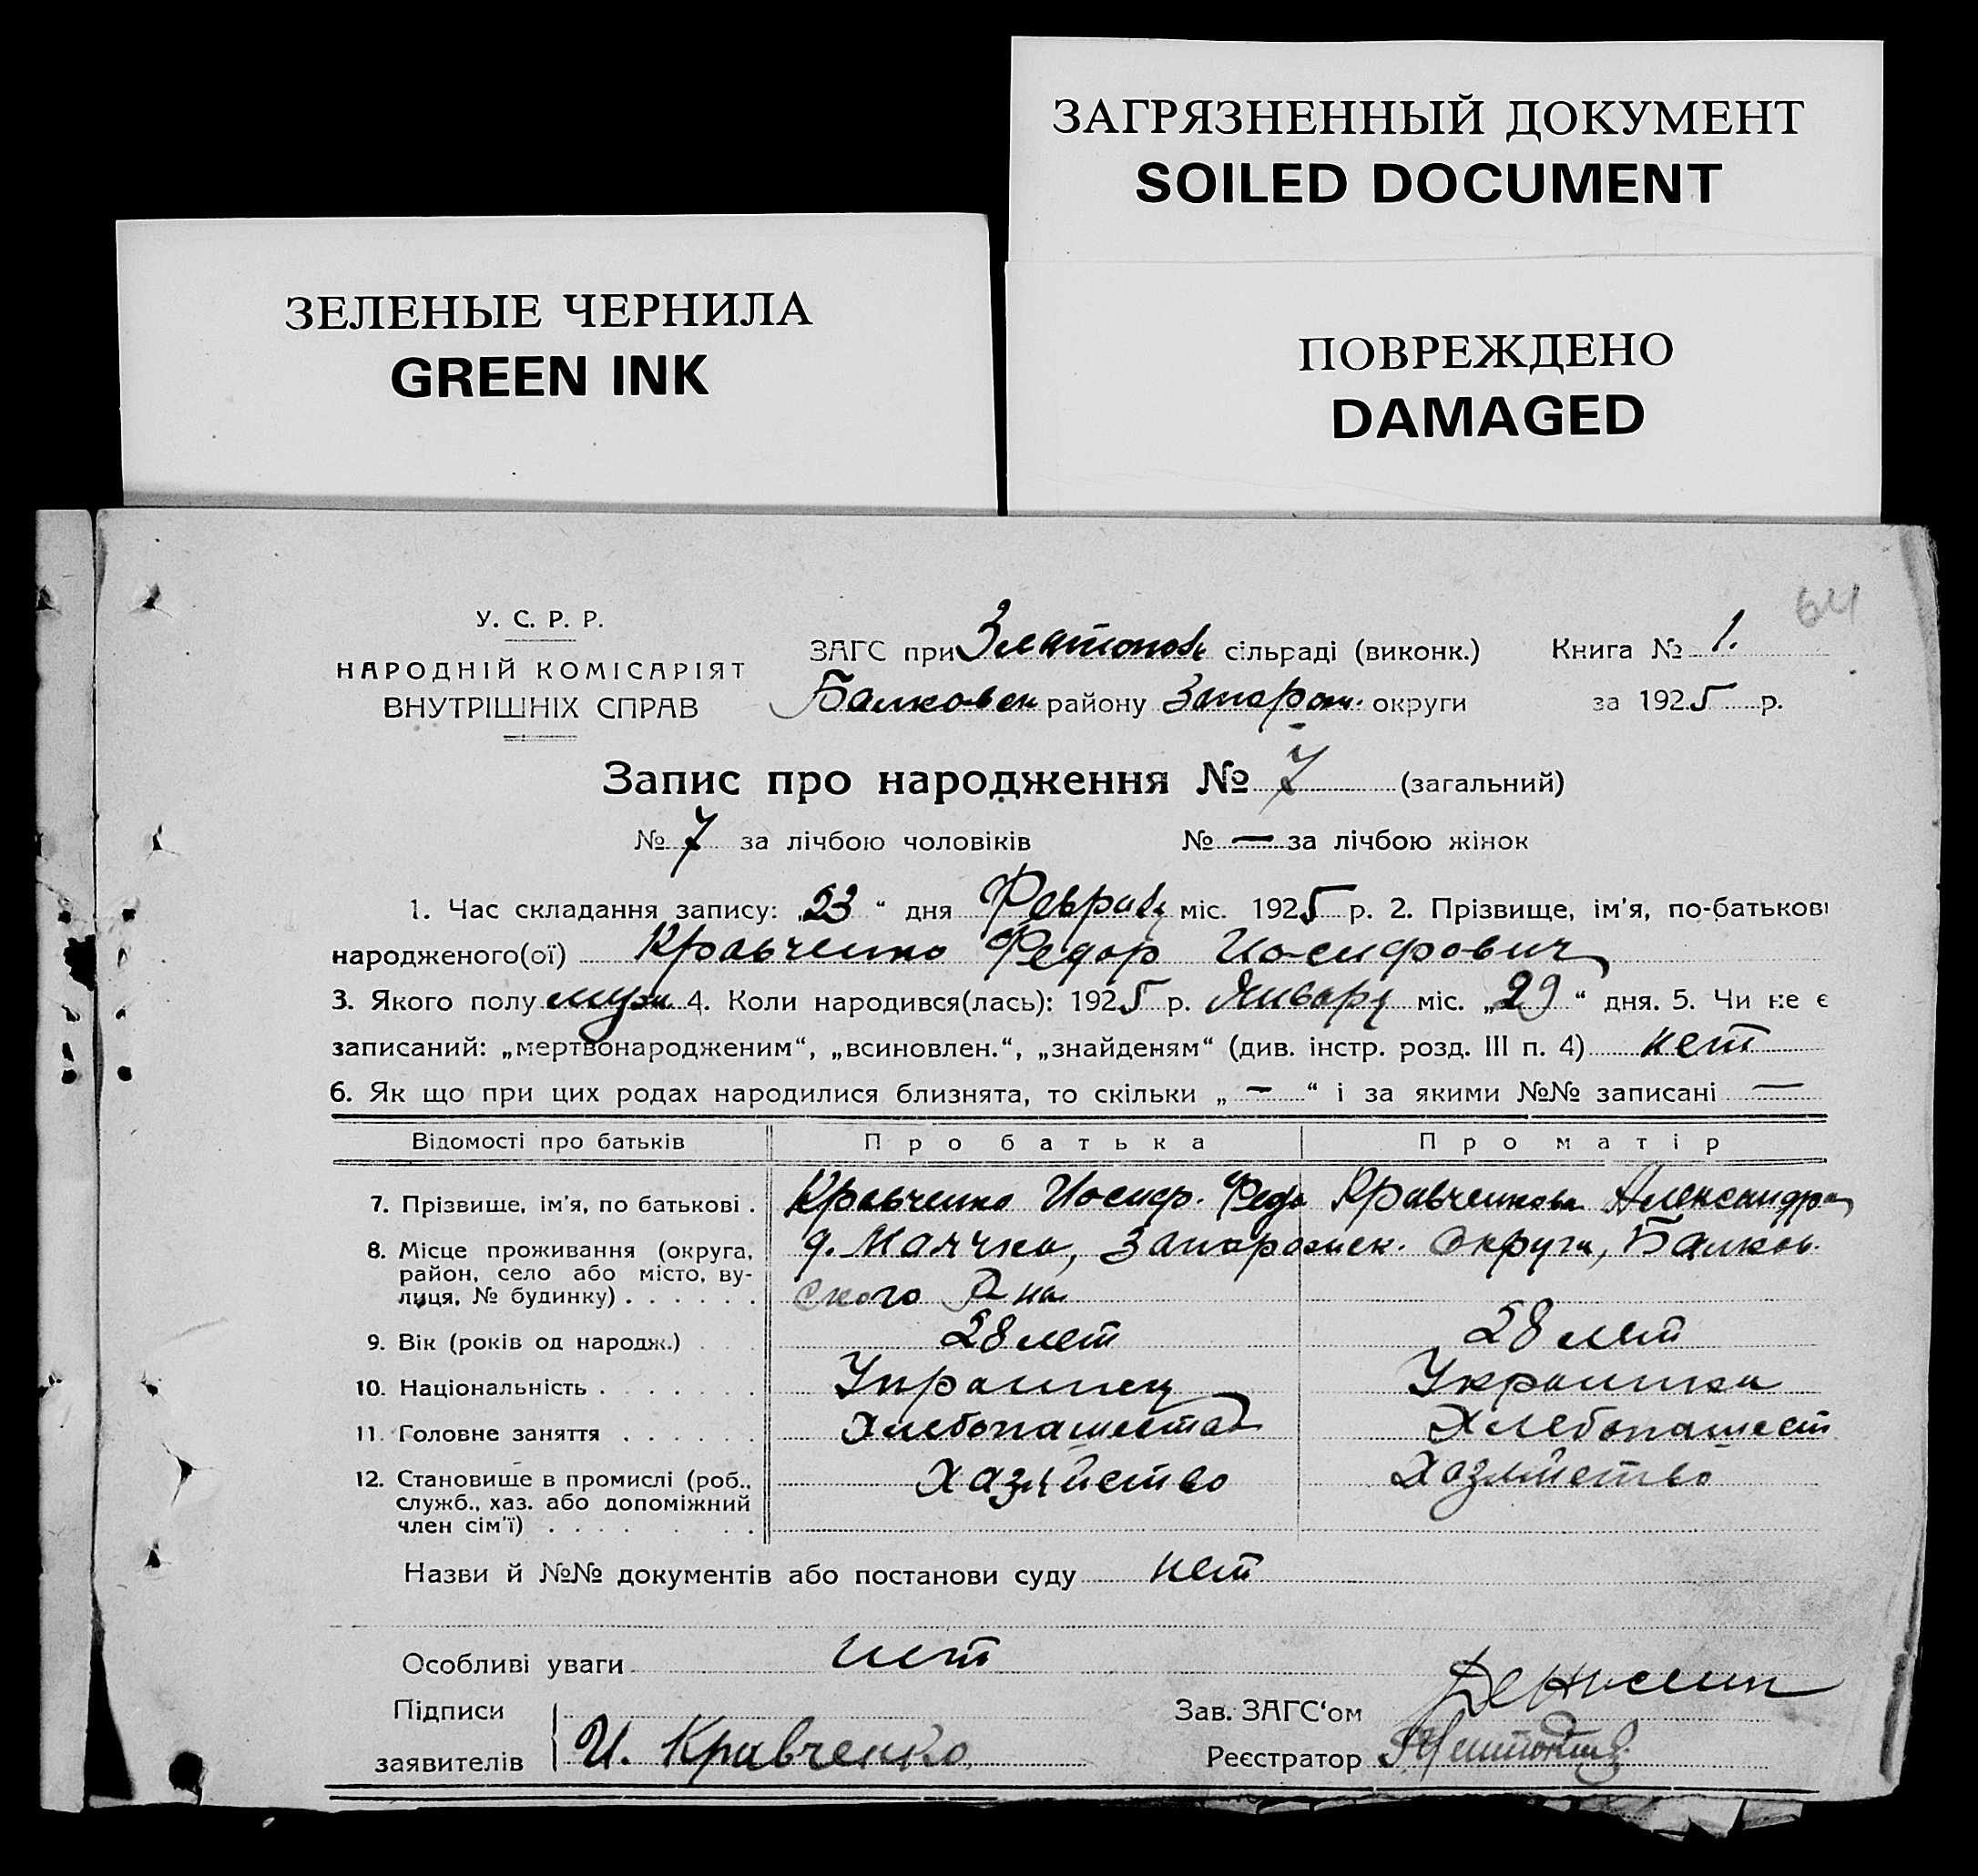 ЗАГРЯЗНЕННЫЙ ДОКУМЕНТ
SOILED DOCUMENT
ЗЕЛЕНЫЕ ЧЕРНИЛА
GREEN INK
ПОВРЕЖДЕНО
DAMAGED
64
У. С. Р. Р.
НАРОДНІЙ КОМІСАРІЯТ
ВНУТРІШНІХ СПРАВ
ЗАГС при Златопов сільраді (виконк.) Книга № 1.
Балковск району Запорож. округи за 1925 р.
Запис про народження № 7 (загальний)
№ 7 за лічбою чоловіків № — за лічбою жінок
1. Час складання запису: „23“ дня Февраля міс. 1925 р. 2. Прізвище, ім'я, по-батькові
народженого(ої) Кравченко Федор Иосифович
3. Якого полу муж 4. Коли народився(лась): 1925 р. Января міс. „29“ дня. 5. Чи не є
записаний: „мертвонародженим“, „всиновлен.“, „знайденям“ (див. інстр. розд. III п. 4) нет
6. Як що при цих родах народилися близнята, то скільки „—“ і за якими №№ записані —
Відомості про батьків Про батька Про матір
7. Прізвище, ім'я, по батькові . Кравченко Иосиф. Федо Кравченкова Александра
8. Місце проживання (округа, д. Маячка, Запорожск. Округи, Балков-
район, село або місто, ву-
лиця, № будинку) . . . . . . ского Р на
9. Вік (років од народж.) . . . 28 лет 28 лет
10. Національність . . . . . . . Украинец Украинка
11. Головне заняття . . . . . . Хлебопашество Хлебопашест
12. Становище в промислі (роб., Хазяйство Хозяйство
служб., хаз. або допоміжний
член сім'ї) . . . . . . .
Назви й №№ документів або постанови суду нет
Особливі уваги нет
Підписи Зав. ЗАГС'ом
заявителів И. Кравченко Реєстратор